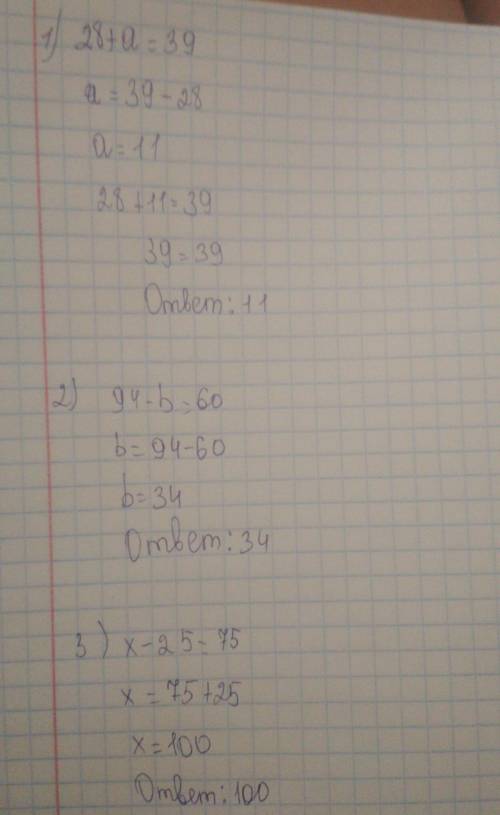 1) 28+a=39
a=39-28
a=11
28+11=39
39=39
Ответ: 11
2) 94-b=60
b=94-60
b=34
Ответ: 34
3) x-25=75
x=75+25
x=100
Ответ: 100